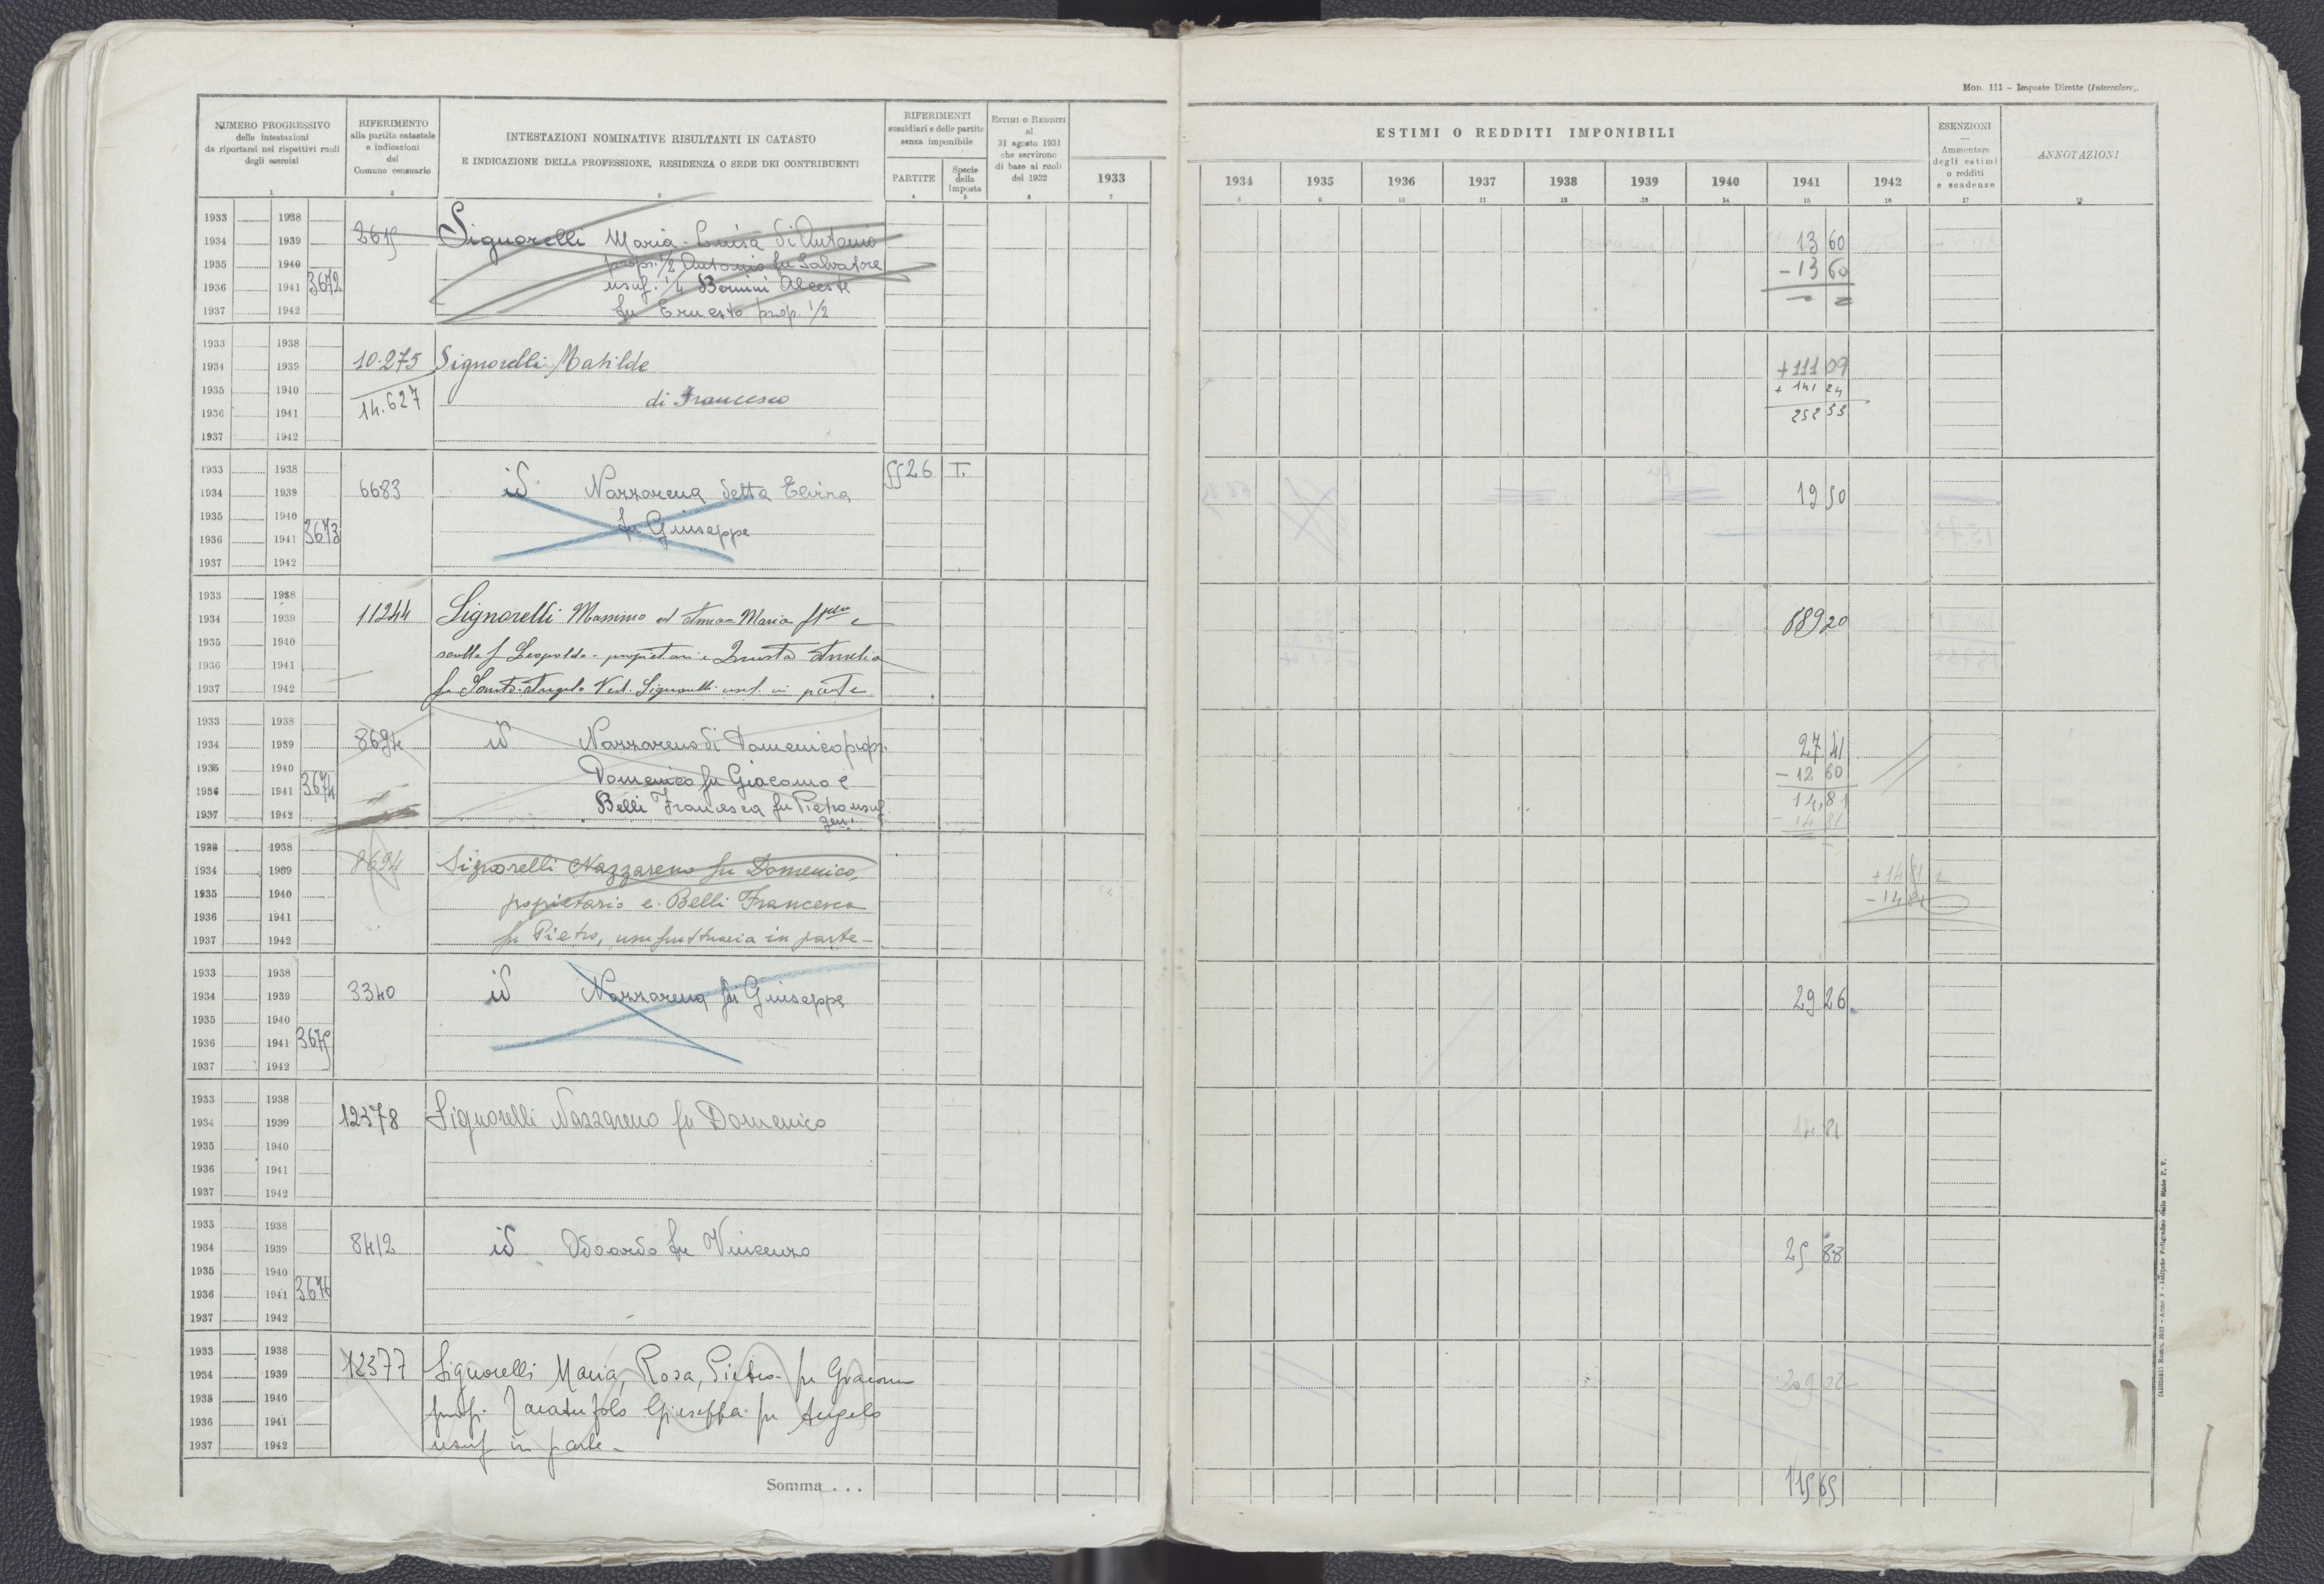 Mon. 111 - Imposte Dirette (Intercalare).
NUMERO PROGRESSIVO
delle intestazioni
da riportarsi nei rispettivi ruoli
degli esercizi
1
RIFERIMENTO
alla partita catastale
e indicazioni
del
Comune censuario
2
INTESTAZIONI NOMINATIVE RISULTANTI IN CATASTO
E INDICAZIONE DELLA PROFESSIONE, RESIDENZA O SEDE DEI CONTRIBUENTI
3
RIFERIMENTI
sussidiari e delle partite
senza imponibile
PARTITE
4
Specie
della
imposta
5
ESTIMI O REDDITI
al
31 agosto 1931
che servirono
di base ai ruoli
del 1932
6
ESTIMI O REDDITI IMPONIBILI
1933 1934 1935 1936 1937 1938 1939 1940 1941 1942
7 8 9 10 11 12 13 14 15 16
ESENZIONI
Ammontare
degli estimi
o redditi
e scadenze
17
ANNOTAZIONI
18
1933 1938
1934 1939 2615 Signorelli Maria-Luisa di Antonio 13 60
1935 1940 propr. 1/2 Antonio fu Salvatore - 13 60
1936 1941 3672 usuf. 1/4 Bernini Alceste
1937 1942 fu Ernesto prop. 1/2
1933 1938
1934 1939 10.275 Signorelli Matilde + 111 09
1935 1940 + 141 24
1936 1941 14.627 di Francesco 252 33
1937 1942
1933 1938 26 T.
1934 1939 6683 id Nazzarena detta Elvira 19 50
1935 1940
1936 1941 3673 fu Giuseppe
1937 1942
1933 1938
1934 1939 11244 Signorelli Massimo ed Anna-Maria e 889 20
1935 1940 Leopoldo - proprietari e Amelia
1936 1941
1937 1942 Ved. Signorelli usuf. in parte
1933 1938
1934 1939 8694 id Nazzareno di Domenico propr. 27 41
1935 1940 Domenico fu Giacomo e - 12 60
1936 1941 3674 Belli Francesca fu Pietro usuf. 14,81
1937 1942 gen. - 14 81
1933 1938
1934 1939 8694 Signorelli Nazzareno fu Domenico, + 14 81
1935 1940 proprietario e Belli Francesca - 14 81
1936 1941
1937 1942 fu Pietro, usufruttuaria in parte -
1933 1938
1934 1939 3340 id Nazzarena fu Giuseppe 29 26
1935 1940
1936 1941 3675
1937 1942
1933 1938
1934 1939 12378 Signorelli Nazzareno fu Domenico 14 81
1935 1940
1936 1941
1937 1942
1933 1938
1934 1939 8412 id Odoardo fu Vincenzo 25 88
1935 1940
1936 1941 3676
1937 1942
1933 1938
1934 1939 12377 Signorelli Maria, Rosa, Pietro fu Giacomo
1935 1940 Giuseppa fu Angelo
1936 1941
1937 1942 usuf in parte -
Somma . . . 115 65